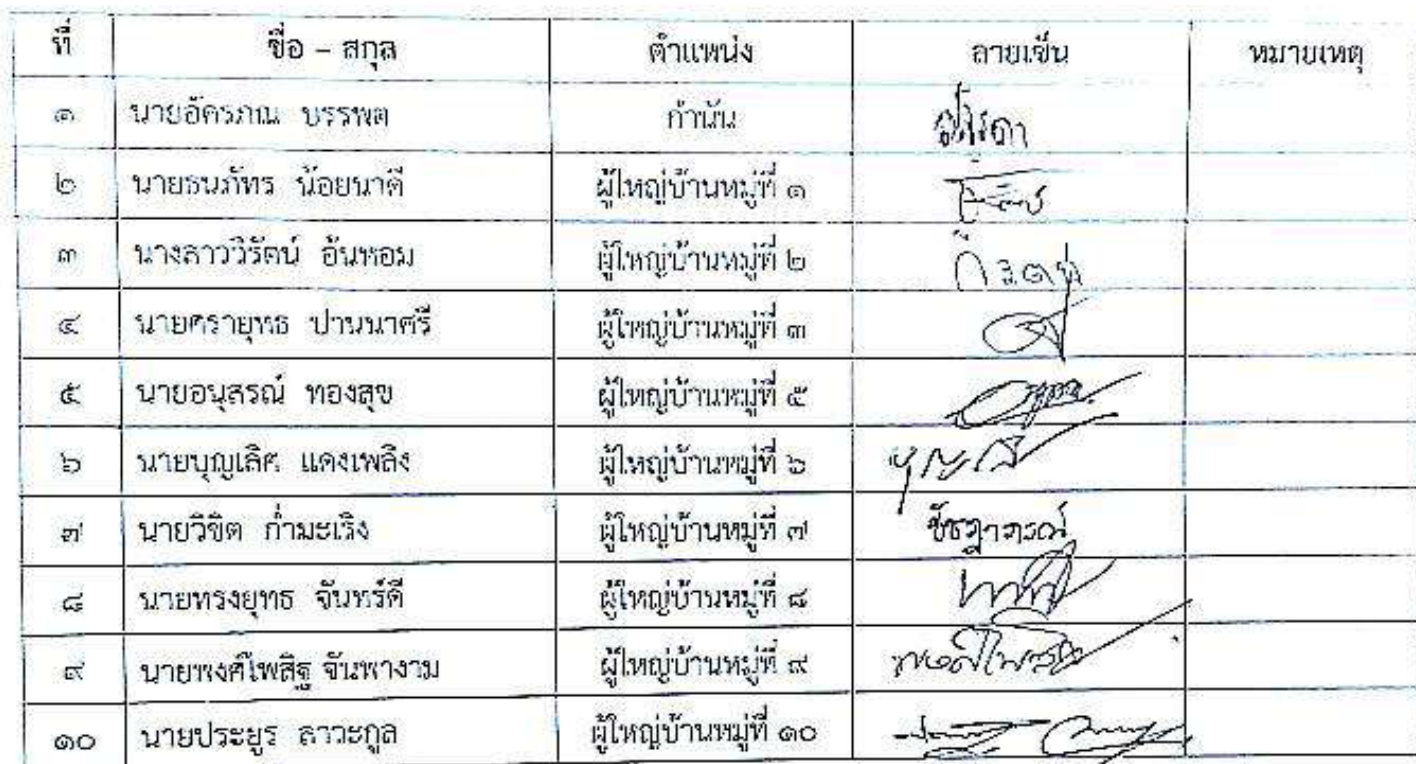 ที่ ชื่อ - สกุล ตำแหน่ง ลายเซ็น หมายเหตุ
๑ นายอัครภณ บรรพต กำนัน
๒ นายธนภัทร น้อยนาดี ผู้ใหญ่บ้านหมู่ที่ ๑
๓ นางสาววิรัตน์ อ้นหอม ผู้ใหญ่บ้านหมู่ที่ ๒
๔ นายศรายุทธ ปานนาศรี ผู้ใหญ่บ้านหมู่ที่ ๓
๕ นายอนุสรณ์ ทองสุข ผู้ใหญ่บ้านหมู่ที่ ๕
๖ นายบุญเลิศ แดงเพลิง ผู้ใหญ่บ้านหมู่ที่ ๖
๗ นายวิชิต ก่ำมะเริง ผู้ใหญ่บ้านหมู่ที่ ๗
๘ นายทรงยุทธ จันทร์ดี ผู้ใหญ่บ้านหมู่ที่ ๘
๙ นายพงศ์ไพสิฐ จันพางาม ผู้ใหญ่บ้านหมู่ที่ ๙
๑๐ นายประยูร ลาวะกูล ผู้ใหญ่บ้านหมู่ที่ ๑๐